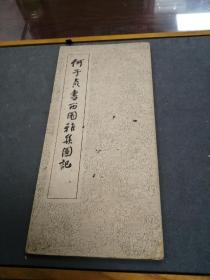 何子貞書西園雅集圖記